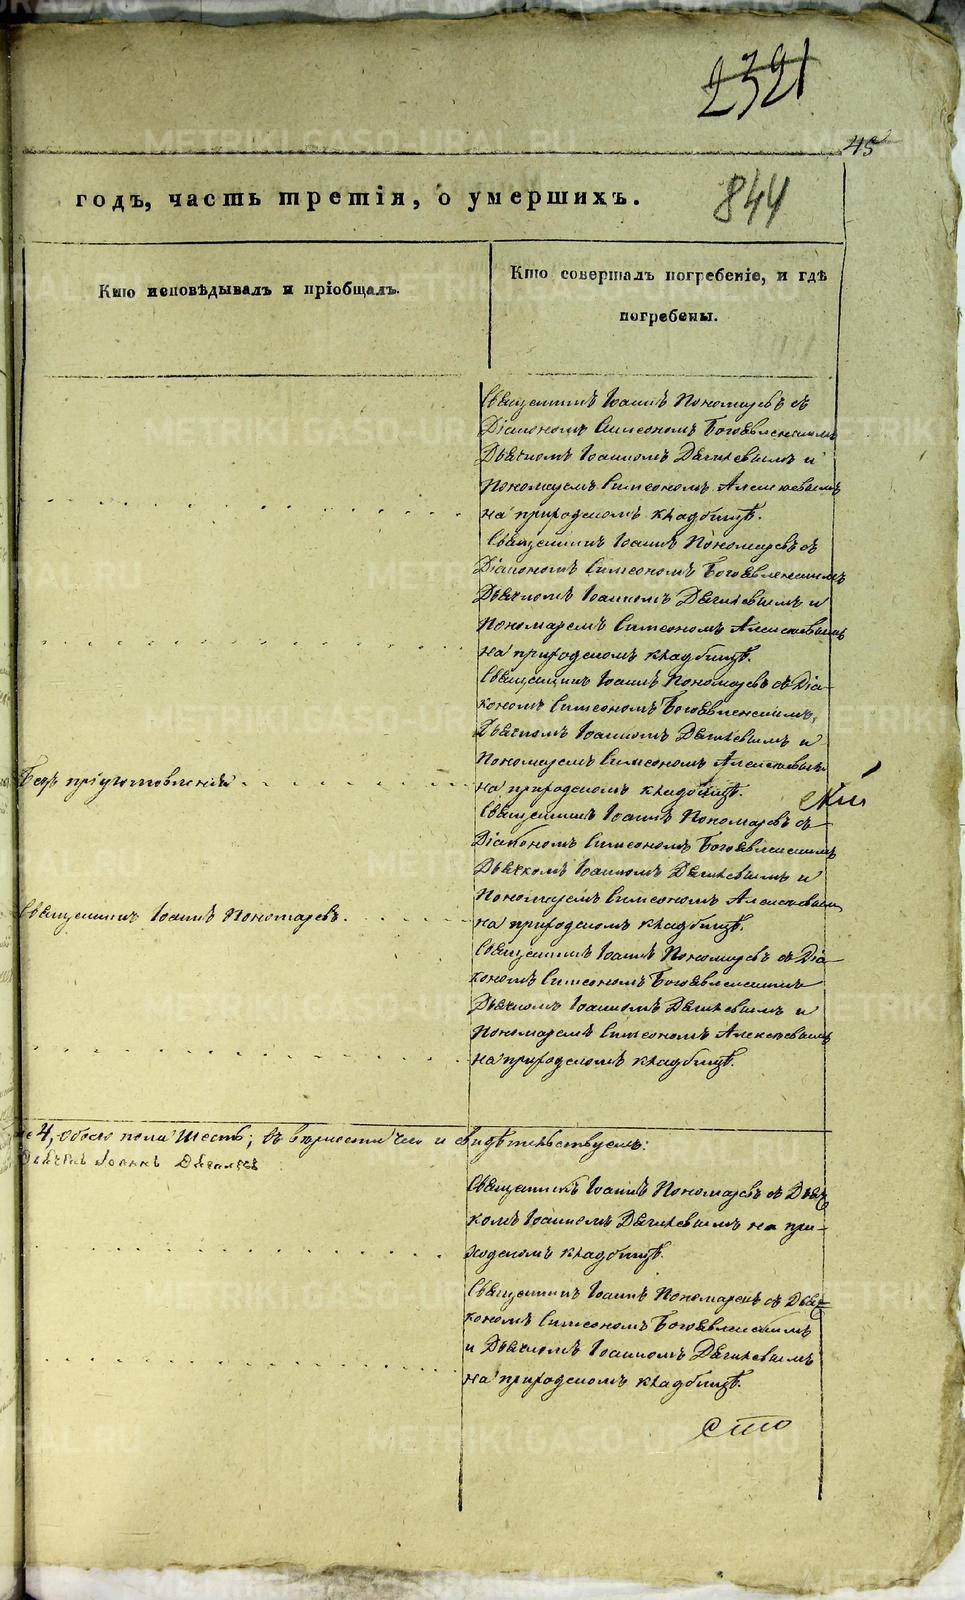 2321
45
годъ, часть третія, о умершихъ.
844
Кто исповѣдывалъ и пріобщалъ.
Кто совершалъ погребеніе, и гдѣ
погребены.
Священникъ Іоаннъ Пономаревъ съ
Діакономъ Симеономъ Богоявленскимъ
Дьячкомъ Іоанномъ Дягилевымъ и
Пономаремъ Симеономъ Алексѣевымъ
на приходскомъ кладбищѣ.
Священникъ Іоаннъ Пономаревъ съ
Діакономъ Симеономъ Богоявленскимъ
Дьячкомъ Іоанномъ Дягилевымъ и
Пономаремъ Симеономъ Алексѣевымъ
на приходскомъ кладбищѣ.
Священникъ Іоаннъ Пономаревъ съ Діа-
кономъ Симеономъ Богоявленскимъ,
Дьячкомъ Іоанномъ Дягилевымъ и
Пономаремъ Симеономъ Алексѣевымъ
Безъ пріуготовленія
на приходскомъ кладбищѣ.
Священникъ Іоаннъ Пономаревъ съ
Діакономъ Симеономъ Богоявленскимъ
Дьячкомъ Іоанномъ Дягилевымъ и
Пономаремъ Симеономъ Алексѣевымъ
Священникъ Іоаннъ Пономаревъ.
на приходскомъ кладбищѣ.
Священникъ Іоаннъ Пономаревъ съ Діа-
кономъ Симеономъ Богоявленскимъ
Дьячкомъ Іоанномъ Дягилевымъ и
Пономаремъ Симеономъ Алексѣевымъ
на приходскомъ кладбищѣ.
4, обоего пола шесть; въ вѣрности чего и свидѣтельствуемъ:
Дьячекъ Іоаннъ Дягилевъ
Священникъ Іоаннъ Пономаревъ съ Дьяч
комъ Іоанномъ Дягилевымъ на при-
ходскомъ кладбищѣ.
Священникъ Іоаннъ Пономаревъ съ Діа=
кономъ Симеономъ Богоявленскимъ
и Дьячкомъ Іоанномъ Дягилевымъ
на приходскомъ кладбищѣ.
METRIKI.GASO-URAL.RU